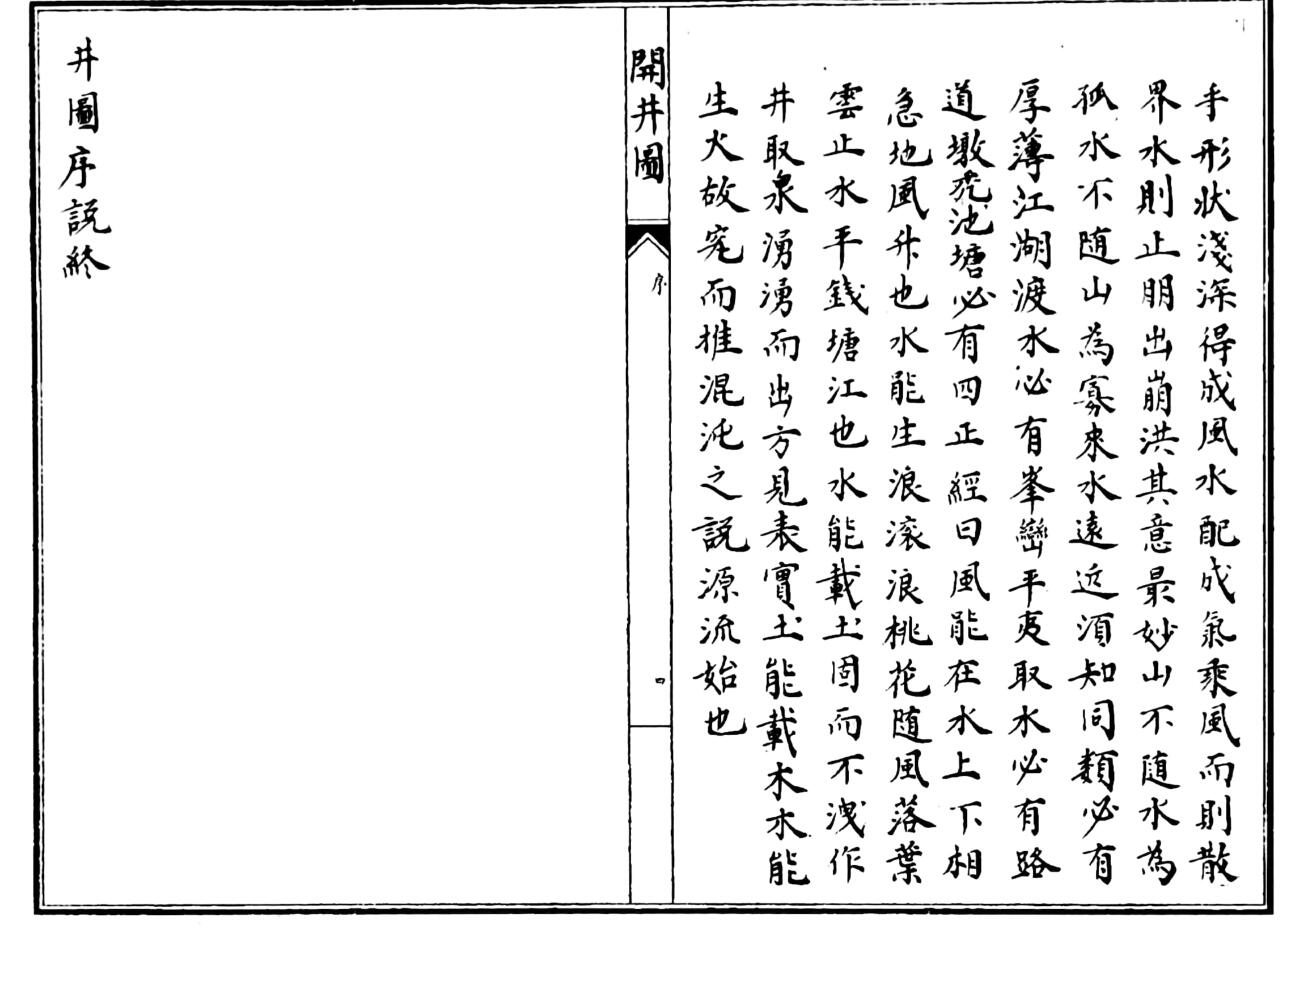 手形狀淺深得成風水配成氣乘風而則散
界水則止朋出崩洪其意最妙山不随水為
孤水不随山為寡来水遠近須知同類必有
厚薄江湖渡水必有峯巒平夷取水必有路
道墩池塘必有四正經曰風能在水上下相
急地風升也水能生浪滚浪桃花随風落葉
雲止水平錢塘江也水能載土固而不洩作
井取泉湧湧而出方見表實土能載木木能
生火故究而推混沌之説源流始也
開井圖
序
四
井圖序説終